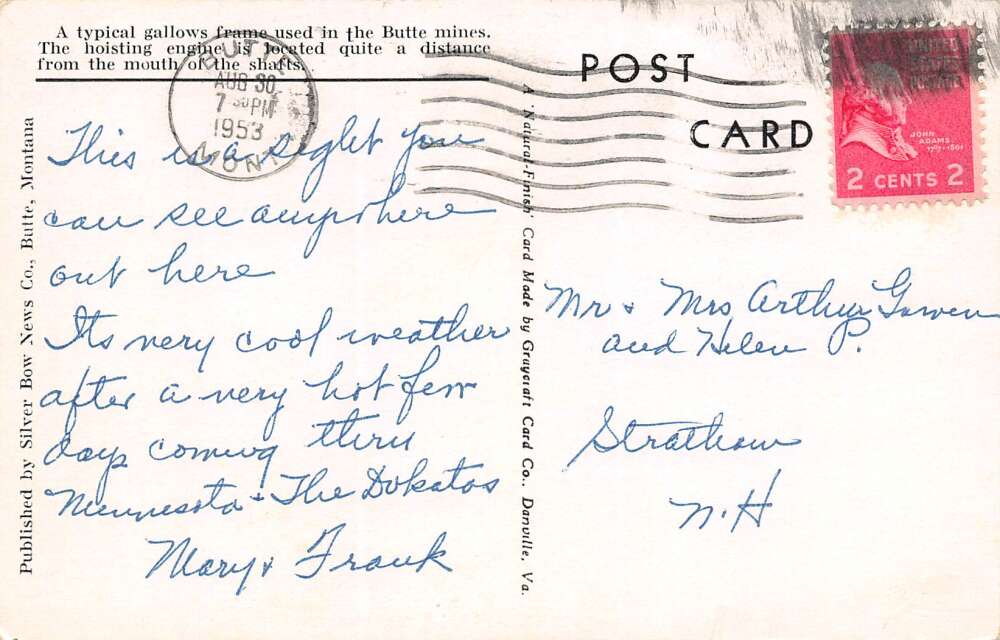 A typical gallows frame used in the Butte mines.
The hoisting engine is located quite a distance
from the mouth of the shafts.
BUTTE
AUG 30
7 30 PM
1953
MONT.
POST
CARD
UNITED
STATES
POSTAGE
JOHN
ADAMS
1797-1801
2 CENTS 2
Published by Silver Bow News Co., Butte, Montana
This is a sight you
can see anywhere
out here
Its very cool weather
after a very hot few
days coming thru
Minnesota + The Dokatas
Mary + Frank
A 'Natural-Finish' Card Made by Graycraft Card Co., Danville, Va.
Mr + Mrs Arthur Gowen
and Helen P.
Stratham
N.H